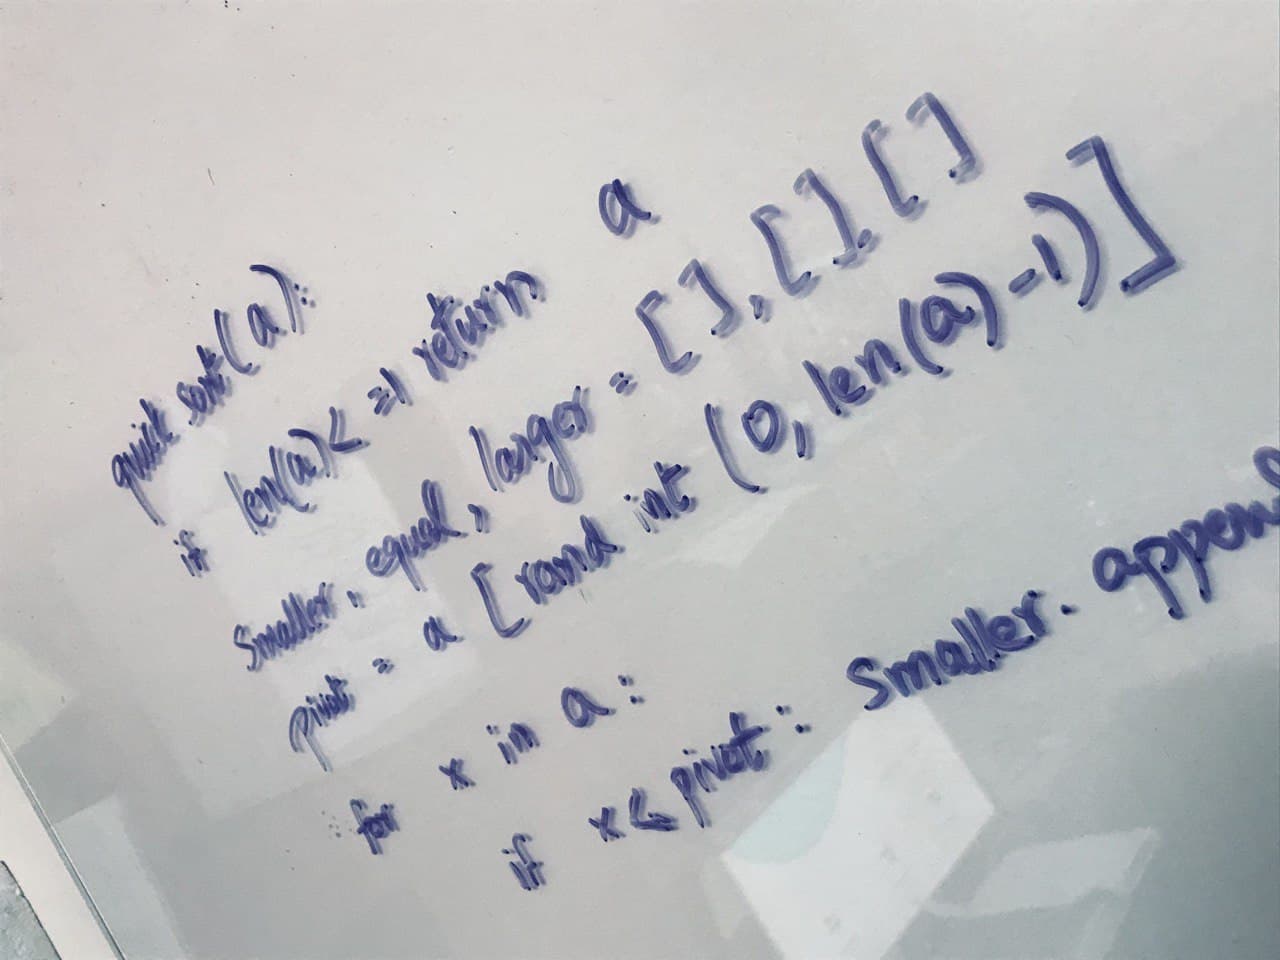 quick sort(a):
if len(a)<=1 return a
smaller, equal, larger = [], [], []
pivot = a [rand int (0, len(a)-1)]
for x in a:
if x< pivot: smaller. append